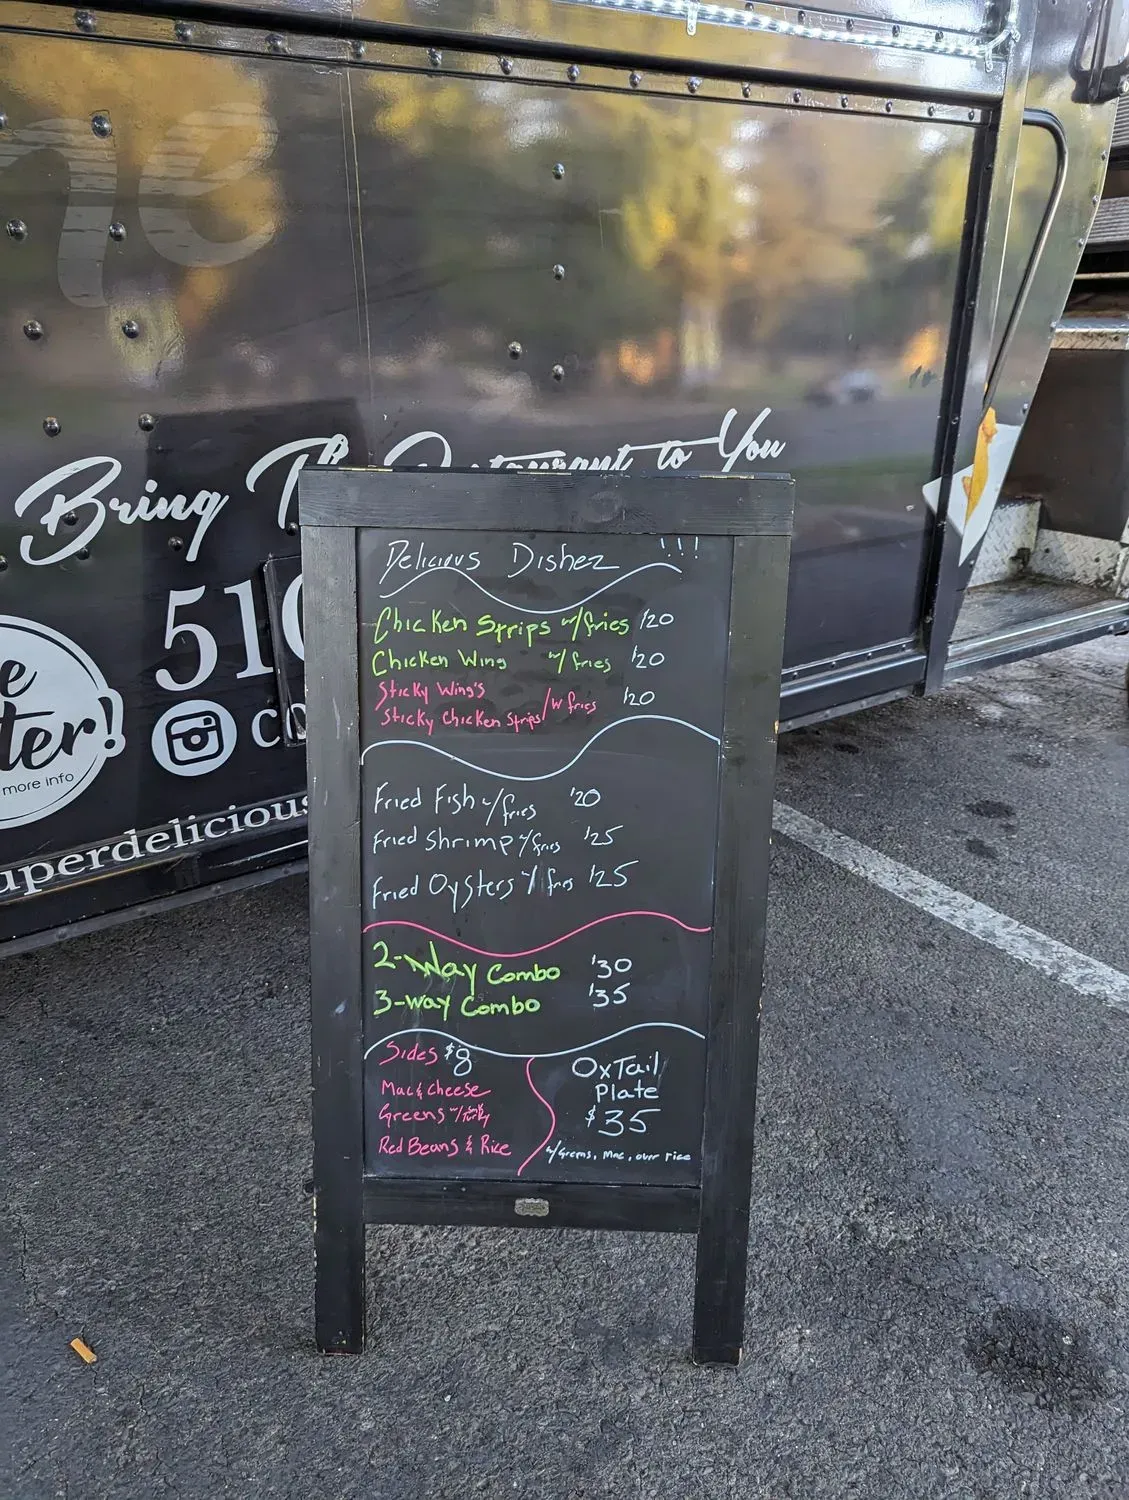 Bring Th Restaurant to You
510
e
ter!
more info
co
uperdelicious
Delicious Dishez !!!
Chicken Strips w/fries $20
Chicken Wing w/fries $20
Sticky Wing's
Sticky Chicken Strips /w fries $20
Fried Fish w/fries $20
Fried Shrimp w/fries $25
Fried Oysters w/fries $25
2-Way Combo $30
3-way Combo $35
Sides $8
Mac & Cheese
Greens w/
Red Beans & Rice
OxTail
Plate
$35
w/Greens, Mac, over rice